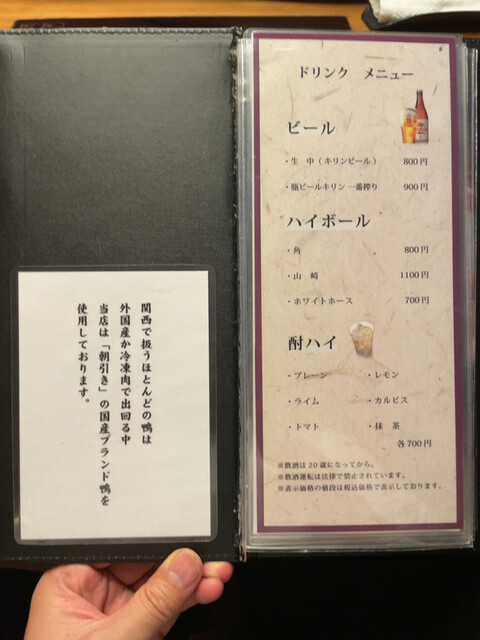 関西で扱うほとんどの鴨は
外国産か冷凍肉で出回る中
当店は「朝引き」の国産ブランド鴨を
使用しております。
ドリンク メニュー
ビール
・生 中(キリンビール) 800円
・瓶ビールキリン一番搾り 900円
ハイボール
・角 800円
・山 崎 1100円
・ホワイトホース 700円
酎ハイ
・プレーン ・レモン
・ライム ・カルピス
・トマト ・抹 茶
各700円
※飲酒は20歳になってから。
※飲酒運転は法律で禁止されています。
※表示価格の値段は税込価格で表示しております。